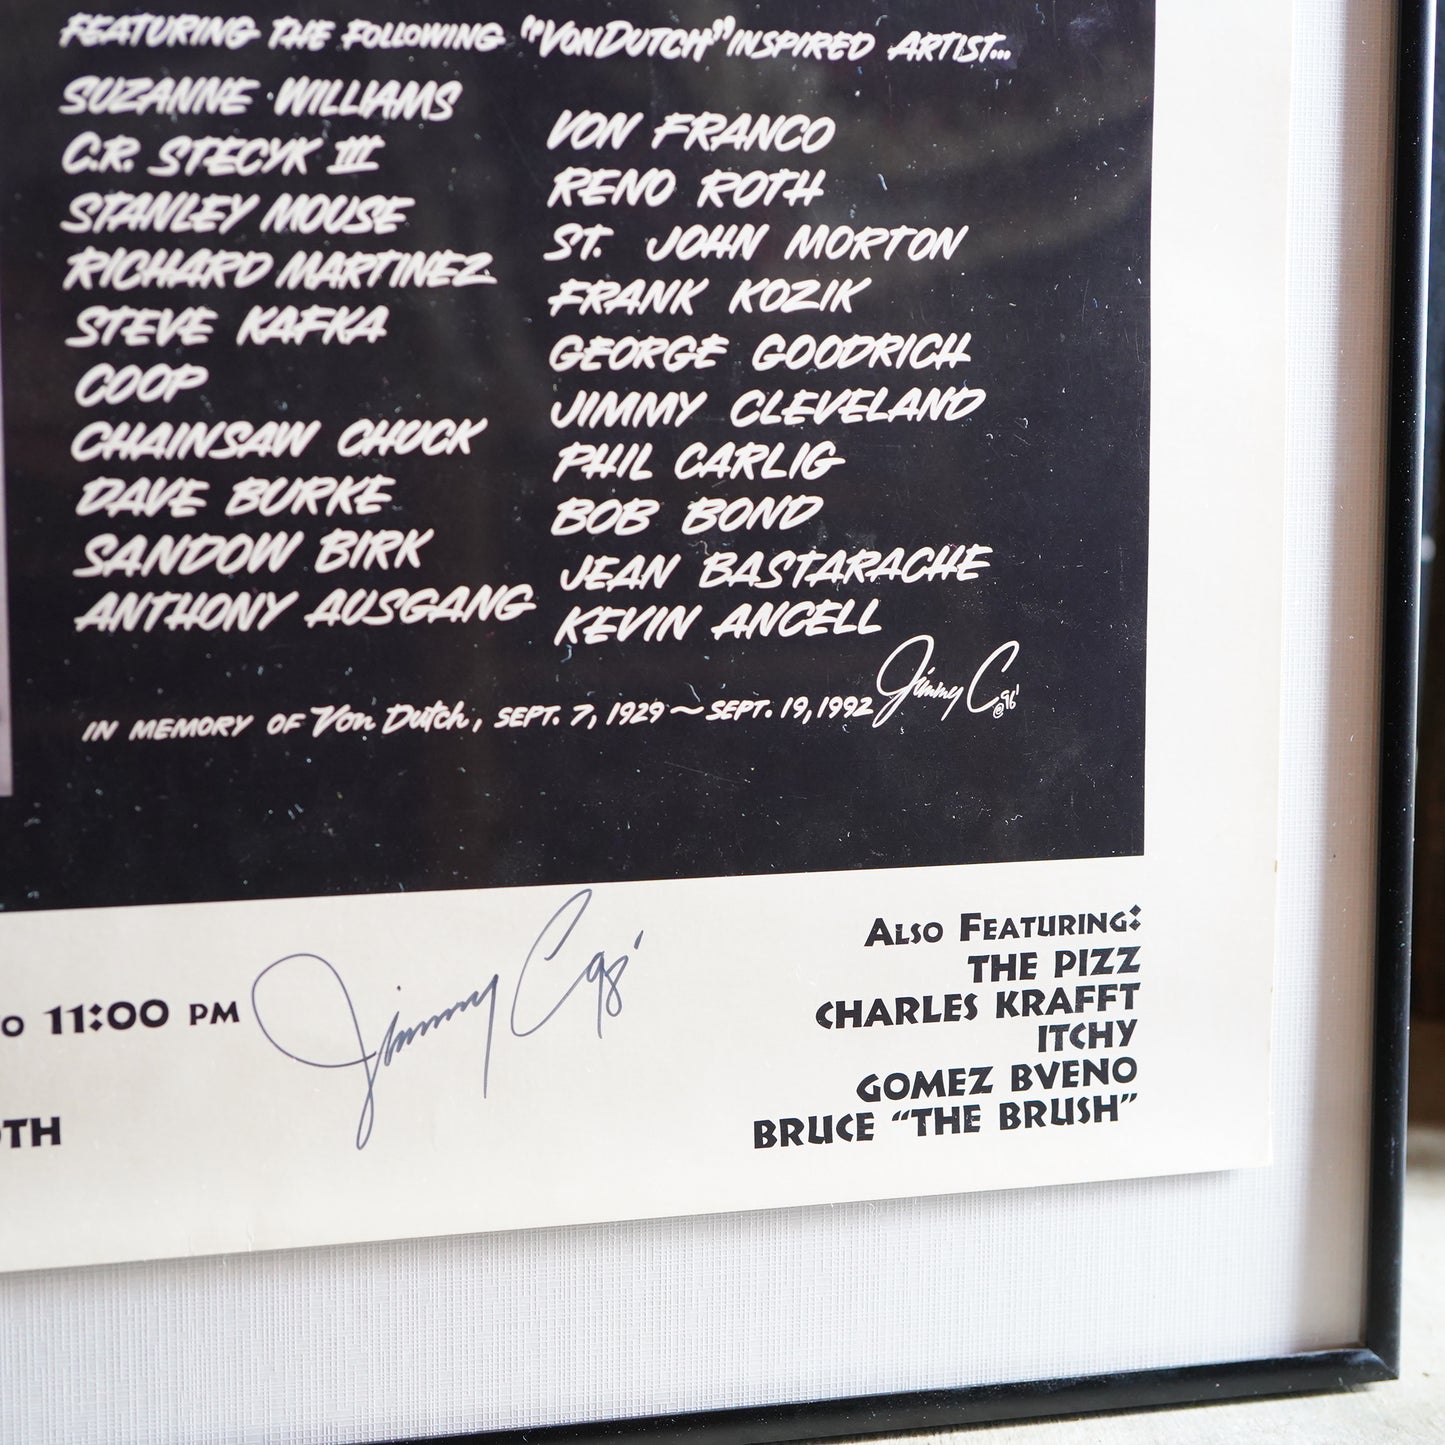 FEATURING THE FOLLOWING "VONDUTCH" INSPIRED ARTIST...
SUZANNE WILLIAMS
C.R. STECYK III
STANLEY MOUSE
RICHARD MARTINEZ
STEVE KAFKA
COOP
CHAINSAW CHUCK
DAVE BURKE
SANDOW BIRK
ANTHONY AUSGANG
VON FRANCO
RENO ROTH
ST. JOHN MORTON
FRANK KOZIK
GEORGE GOODRICH
JIMMY CLEVELAND
PHIL CARLIG
BOB BOND
JEAN BASTARACHE
KEVIN ANCELL
IN MEMORY OF Von Dutch, SEPT. 7, 1929 ~ SEPT. 19, 1992
Jimmy C @96'
O 11:00 PM
Jimmy C 98'
OTH
ALSO FEATURING:
THE PIZZ
CHARLES KRAFFT
ITCHY
GOMEZ BVENO
BRUCE "THE BRUSH"